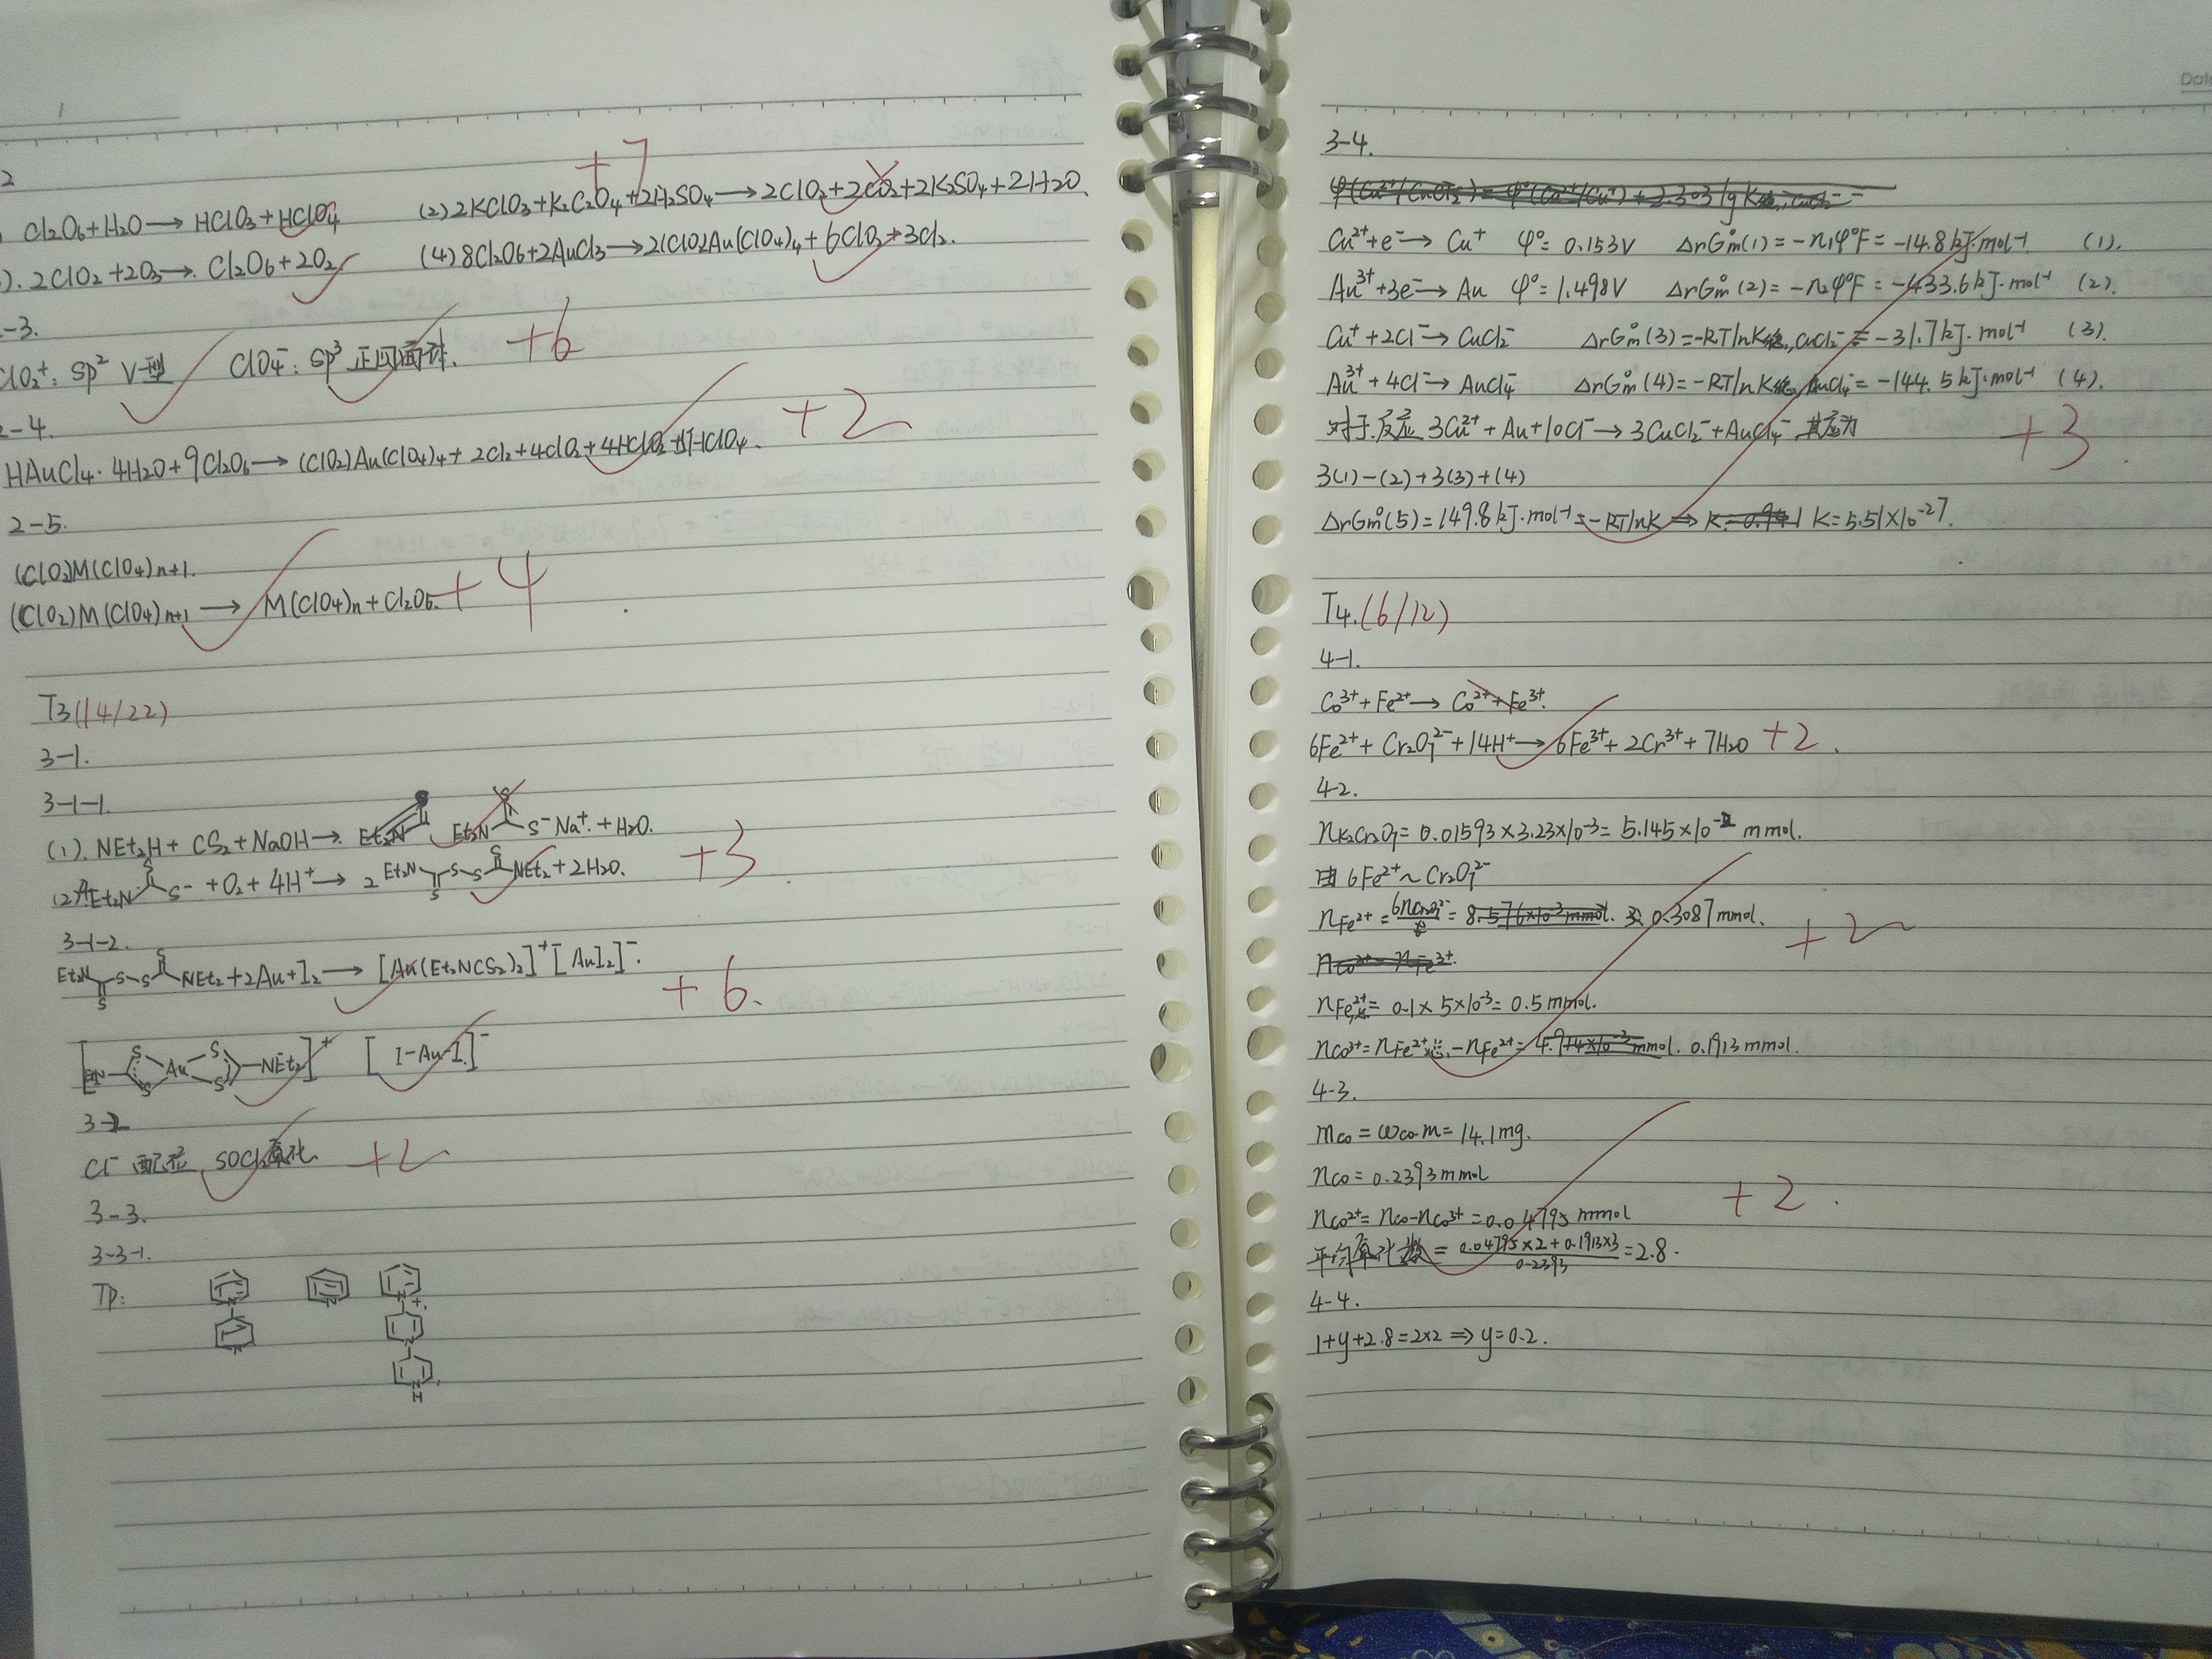 1
2
+7
Cl2O6+H2O → HClO3+HClO4 (2) 2KClO3+K2C2O4+2H2SO4 → 2ClO2+2CO2+2K2SO4+2H2O.
). 2ClO2+2O3 → Cl2O6+2O2 (4) 8Cl2O6+2AuCl3 → 2(ClO2)Au(ClO4)4+6ClO2+3Cl2.
-3.
ClO2+: sp2 V型 ClO4-: sp3 正四面体. +6
2-4.
HAuCl4·4H2O+9Cl2O6 → (ClO2)Au(ClO4)4+2Cl2+4ClO2+4HClO3+5HClO4. +2
2-5.
(ClO2)M(ClO4)n+1.
(ClO2)M(ClO4)n+1 → M(ClO4)n+Cl2O6. +4
T3(14/22)
3-1.
3-1-1.
(1). NEt2H+CS2+NaOH → Et2N S S-Na+. +H2O.
(2) 4Et2N S S- +O2+4H+ → 2 Et2N S S S S NEt2+2H2O. +3
3-1-2.
Et2N S S S S NEt2+2Au+I2 → [Au(Et2NCS2)2]+[AuI2]-. +6.
[Et2N S S Au S S NEt2]+ [I-Au-I]-
3-2
Cl-配位, SOCl2氧化. +2
3-3.
3-3-1.
TP: N N N N+ N N H
Date
3-4.
Cu2++e- → Cu+ φ°=0.153V ΔrGm°(1)=-n1φ°F=-14.8kJ·mol-1 (1).
Au3++3e- → Au φ°=1.498V ΔrGm°(2)=-n2φ°F=-433.6kJ·mol-1 (2).
Cu++2Cl- → CuCl2- ΔrGm°(3)=-RTlnK稳,CuCl2-=-31.7kJ·mol-1 (3).
Au3++4Cl- → AuCl4- ΔrGm°(4)=-RTlnK稳,AuCl4-=-144.5kJ·mol-1 (4).
对于反应 3Cu2++Au+10Cl- → 3CuCl2-+AuCl4-, 其应为 +3
3(1)-(2)+3(3)+(4)
ΔrGm°(5)=149.8kJ·mol-1=-RTlnK ⇒ K=5.51×10-27.
T4.(6/12)
4-1.
Co3++Fe2+ → Co2++Fe3+.
6Fe2++Cr2O72-+14H+ → 6Fe3++2Cr3++7H2O +2.
4-2.
nK2Cr2O7=0.01593×3.23×10-3=5.145×10-2 mmol.
由6Fe2+~Cr2O72-
nFe2+=6nCr2O72-= 0.3087mmol. +2
nFe2+总=0.1×5×10-3=0.5mmol.
nCo3+=nFe2+总-nFe2+= 0.1913mmol.
4-3.
mCo=ωCo·m=14.1mg.
nCo=0.2393mmol +2.
nCo2+=nCo-nCo3+=0.04795mmol
平均氧化数=0.04795×2+0.1913×3/0.2393=2.8.
4-4.
1+y+2.8=2×2 ⇒ y=0.2.